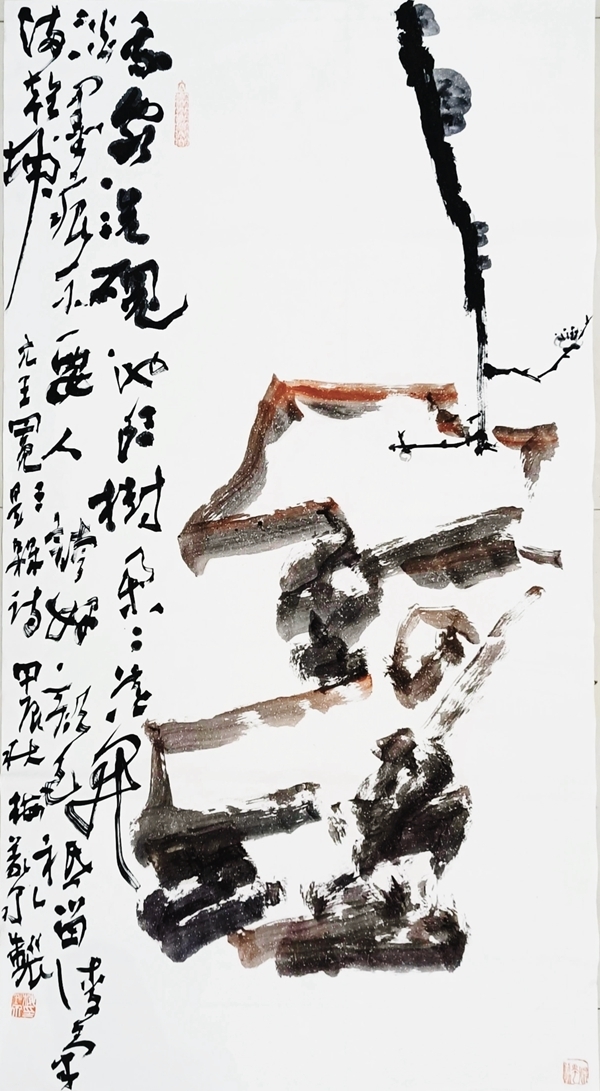 我家洗硯池頭樹朵朵花開
淡墨痕不要人誇好顏色祗留清氣
滿乾坤
元王冕墨槑詩 甲辰秋
製